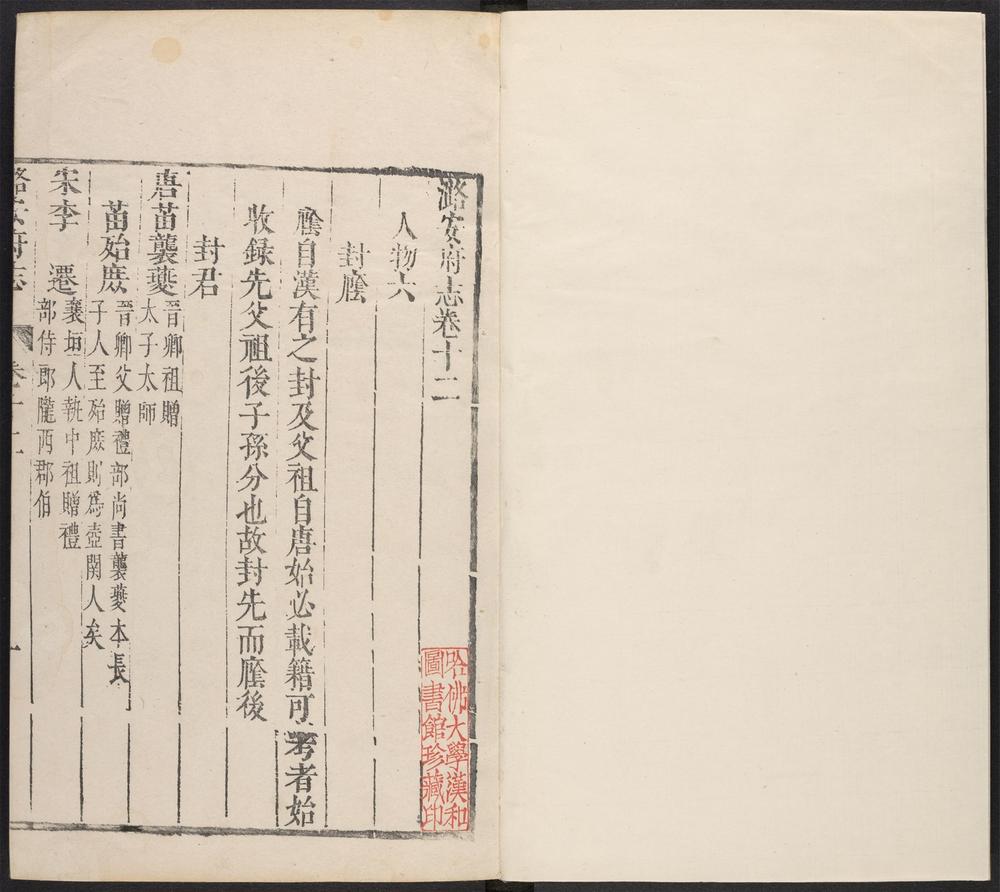 潞安府志卷十二
人物六
封廕
廕自漢有之封及父祖自唐始必載籍可考者始
收録先父祖後子孫分也故封先而廕後
封君
唐苗襲夔晉卿祖贈
太子太師
苗殆庶晉卿父贈禮部尚書襲夔本長
子人至殆庶則爲壺関人矣
宋李 遷襄垣人執中祖贈禮
部侍郎隴西郡伯
潞安府志
卷十二
一
哈佛大學漢和
圖書館珍藏印